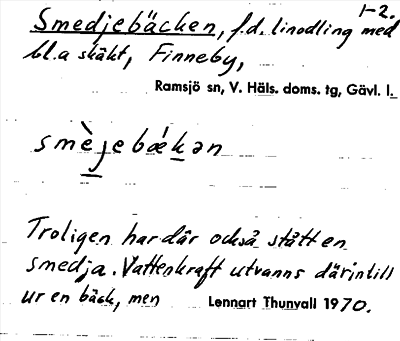 1-2.
Smedjebäcken, f.d. linodling med
bl.a skäkt, Finneby,
Ramsjö sn, V. Häls. doms. tg, Gävl. l.
smèjebǽkən
Troligen har där också stått en
smedja. Vattenkraft utvanns därintill
ur en bäck, men Lennart Thunvall 1970.